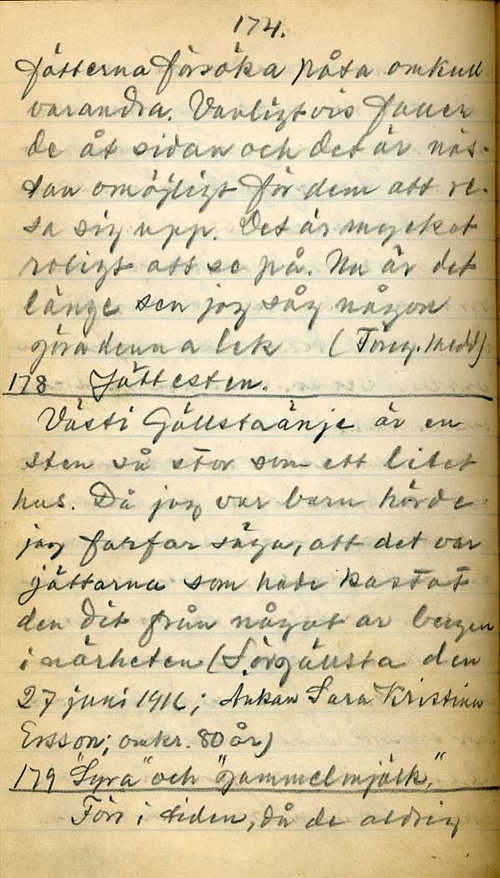 174.
fötterna försöka påta omkull
varandra. Vanligtvis faller
de åt sidan och det är näs-
tan omöjligt för dem att re-
sa sig upp. Det är mycket
roligt att se på. Nu är det
länge sen jag såg någon
göra denna lek (Föreg. medd)
178 Jättesten.
Västi Gällstaänje är en
sten så stor som ett litet
hus. Då jag var barn hörde
jag farfar säga, att det var
jättarna som hade kastat
den dit från något av bergen
i närheten (Sörgällsta den
27 juni 1916; Ankan Sara Kristina
Ersson; omkr. 80 år)
179 "Syra" och "gammelmjölk."
Förr i tiden, då de aldrig